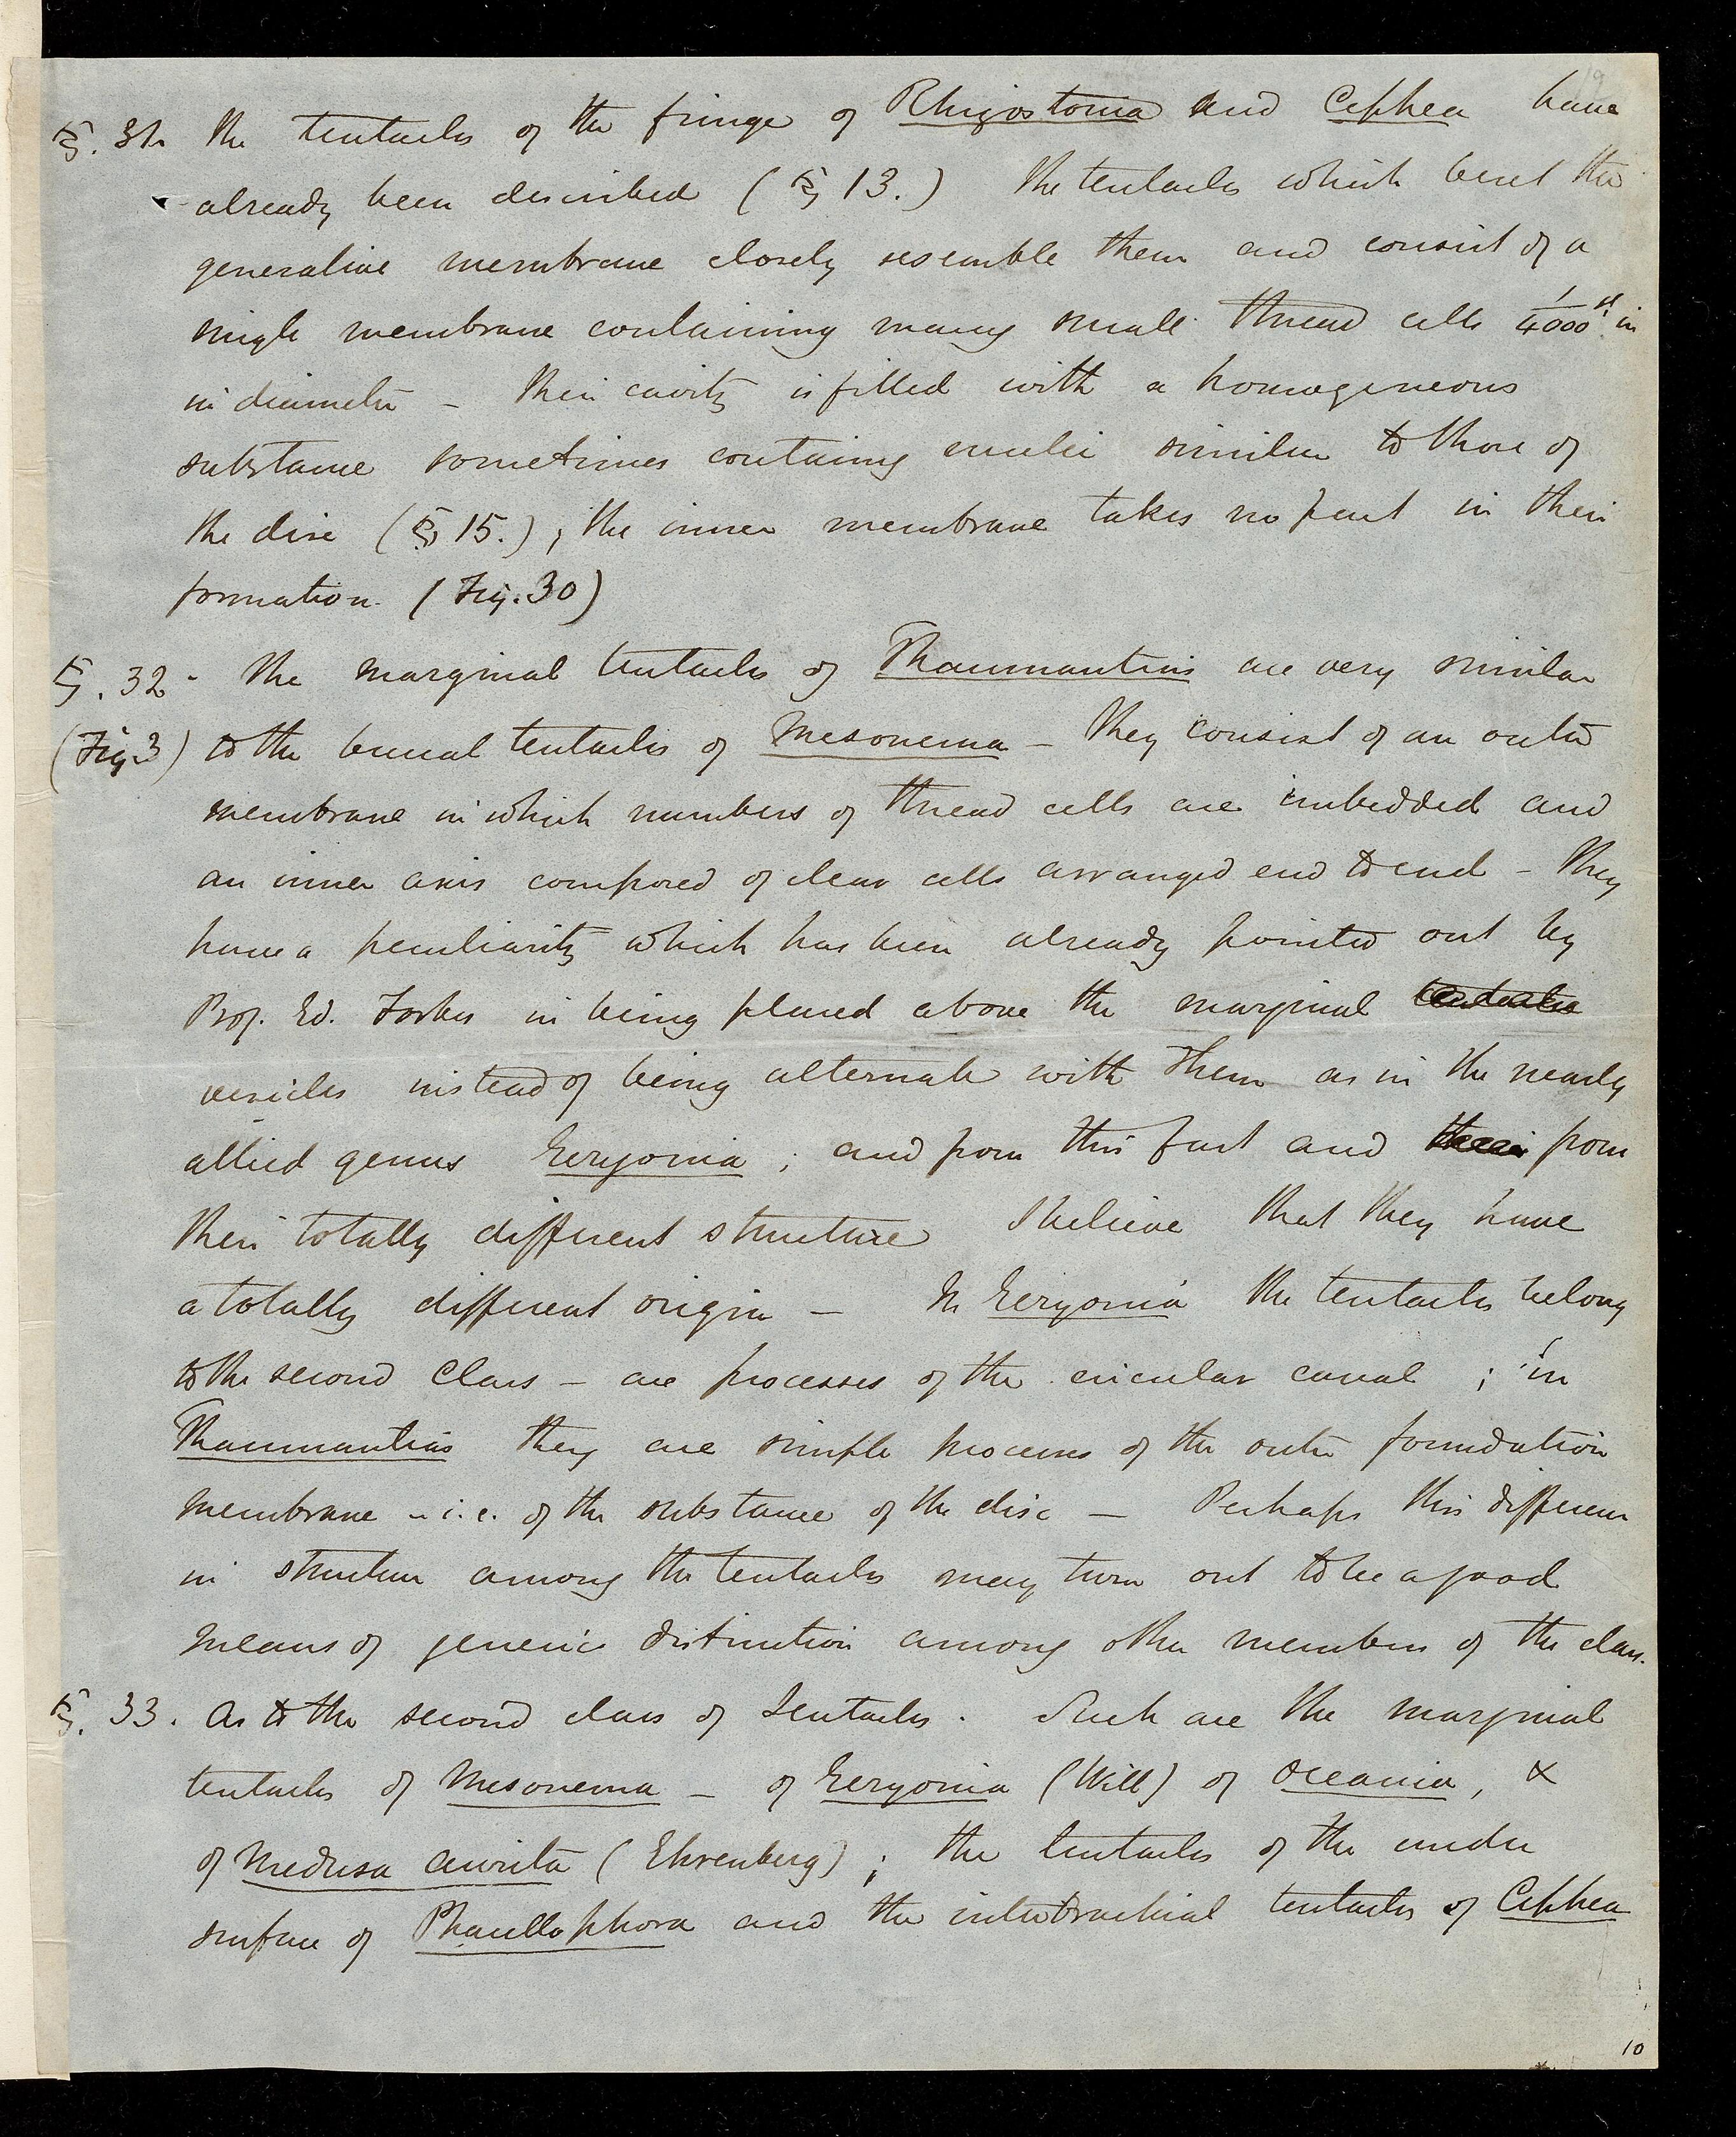 §. 31. The tentacles of the fringe of Rhizostoma and Cephea have
already been described (§ 13.) The tentacles which beset the
generative membrane closely resemble them and consist of a
single membrane containing many small thread cells 1/4000th in
in diameter – Their cavity is filled with a homogeneous
substance sometimes containing nuclei similar to those of
the disc (§ 15.); the inner membrane takes no part in their
formation. (Fig. 30)
§. 32. The marginal tentacles of Thaumantias are very similar
(Fig. 3) to the buccal tentacles of Mesonema – They consist of an outer
membrane in which numbers of thread cells are imbedded and
an inner axis composed of clear cells arranged end to end – They
have a peculiarity which has been already pointed out by
Prof. Ed. Forbes in being placed above the marginal tentacles
vesicles instead of being alternate with them as in the nearly
allied genus Geryonia; and from this fact and their from
their totally different structure I believe that they have
a totally different origin – In Geryonia the tentacles belong
to the second class – are processes of the circular canal; in
Thaumantias they are simple processes of the outer foundation
membrane – i.e. of the substance of the disc – Perhaps this difference
in structure among the tentacles may turn out to be a good
means of generic distinction among other members of the class.
§. 33. As to the second class of Tentacles. Such are the marginal
tentacles of Mesonema – of Geryonia (Will) of Oceania, &
of Medusa aurita (Ehrenberg); the tentacles of the under
surface of Phacellophora and the interbrachial tentacles of Cephea
10